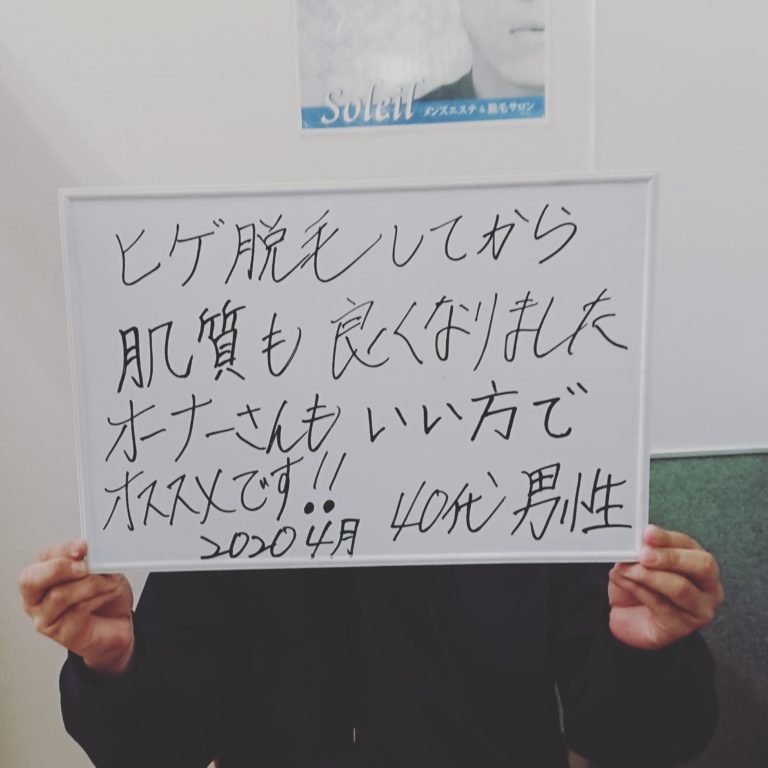 Soleil メンズエステ&脱毛サロン
ヒゲ脱毛してから
肌質も良くなりました
オーナーさんもいい方で
オススメです!!
2020 4月 40代 男性